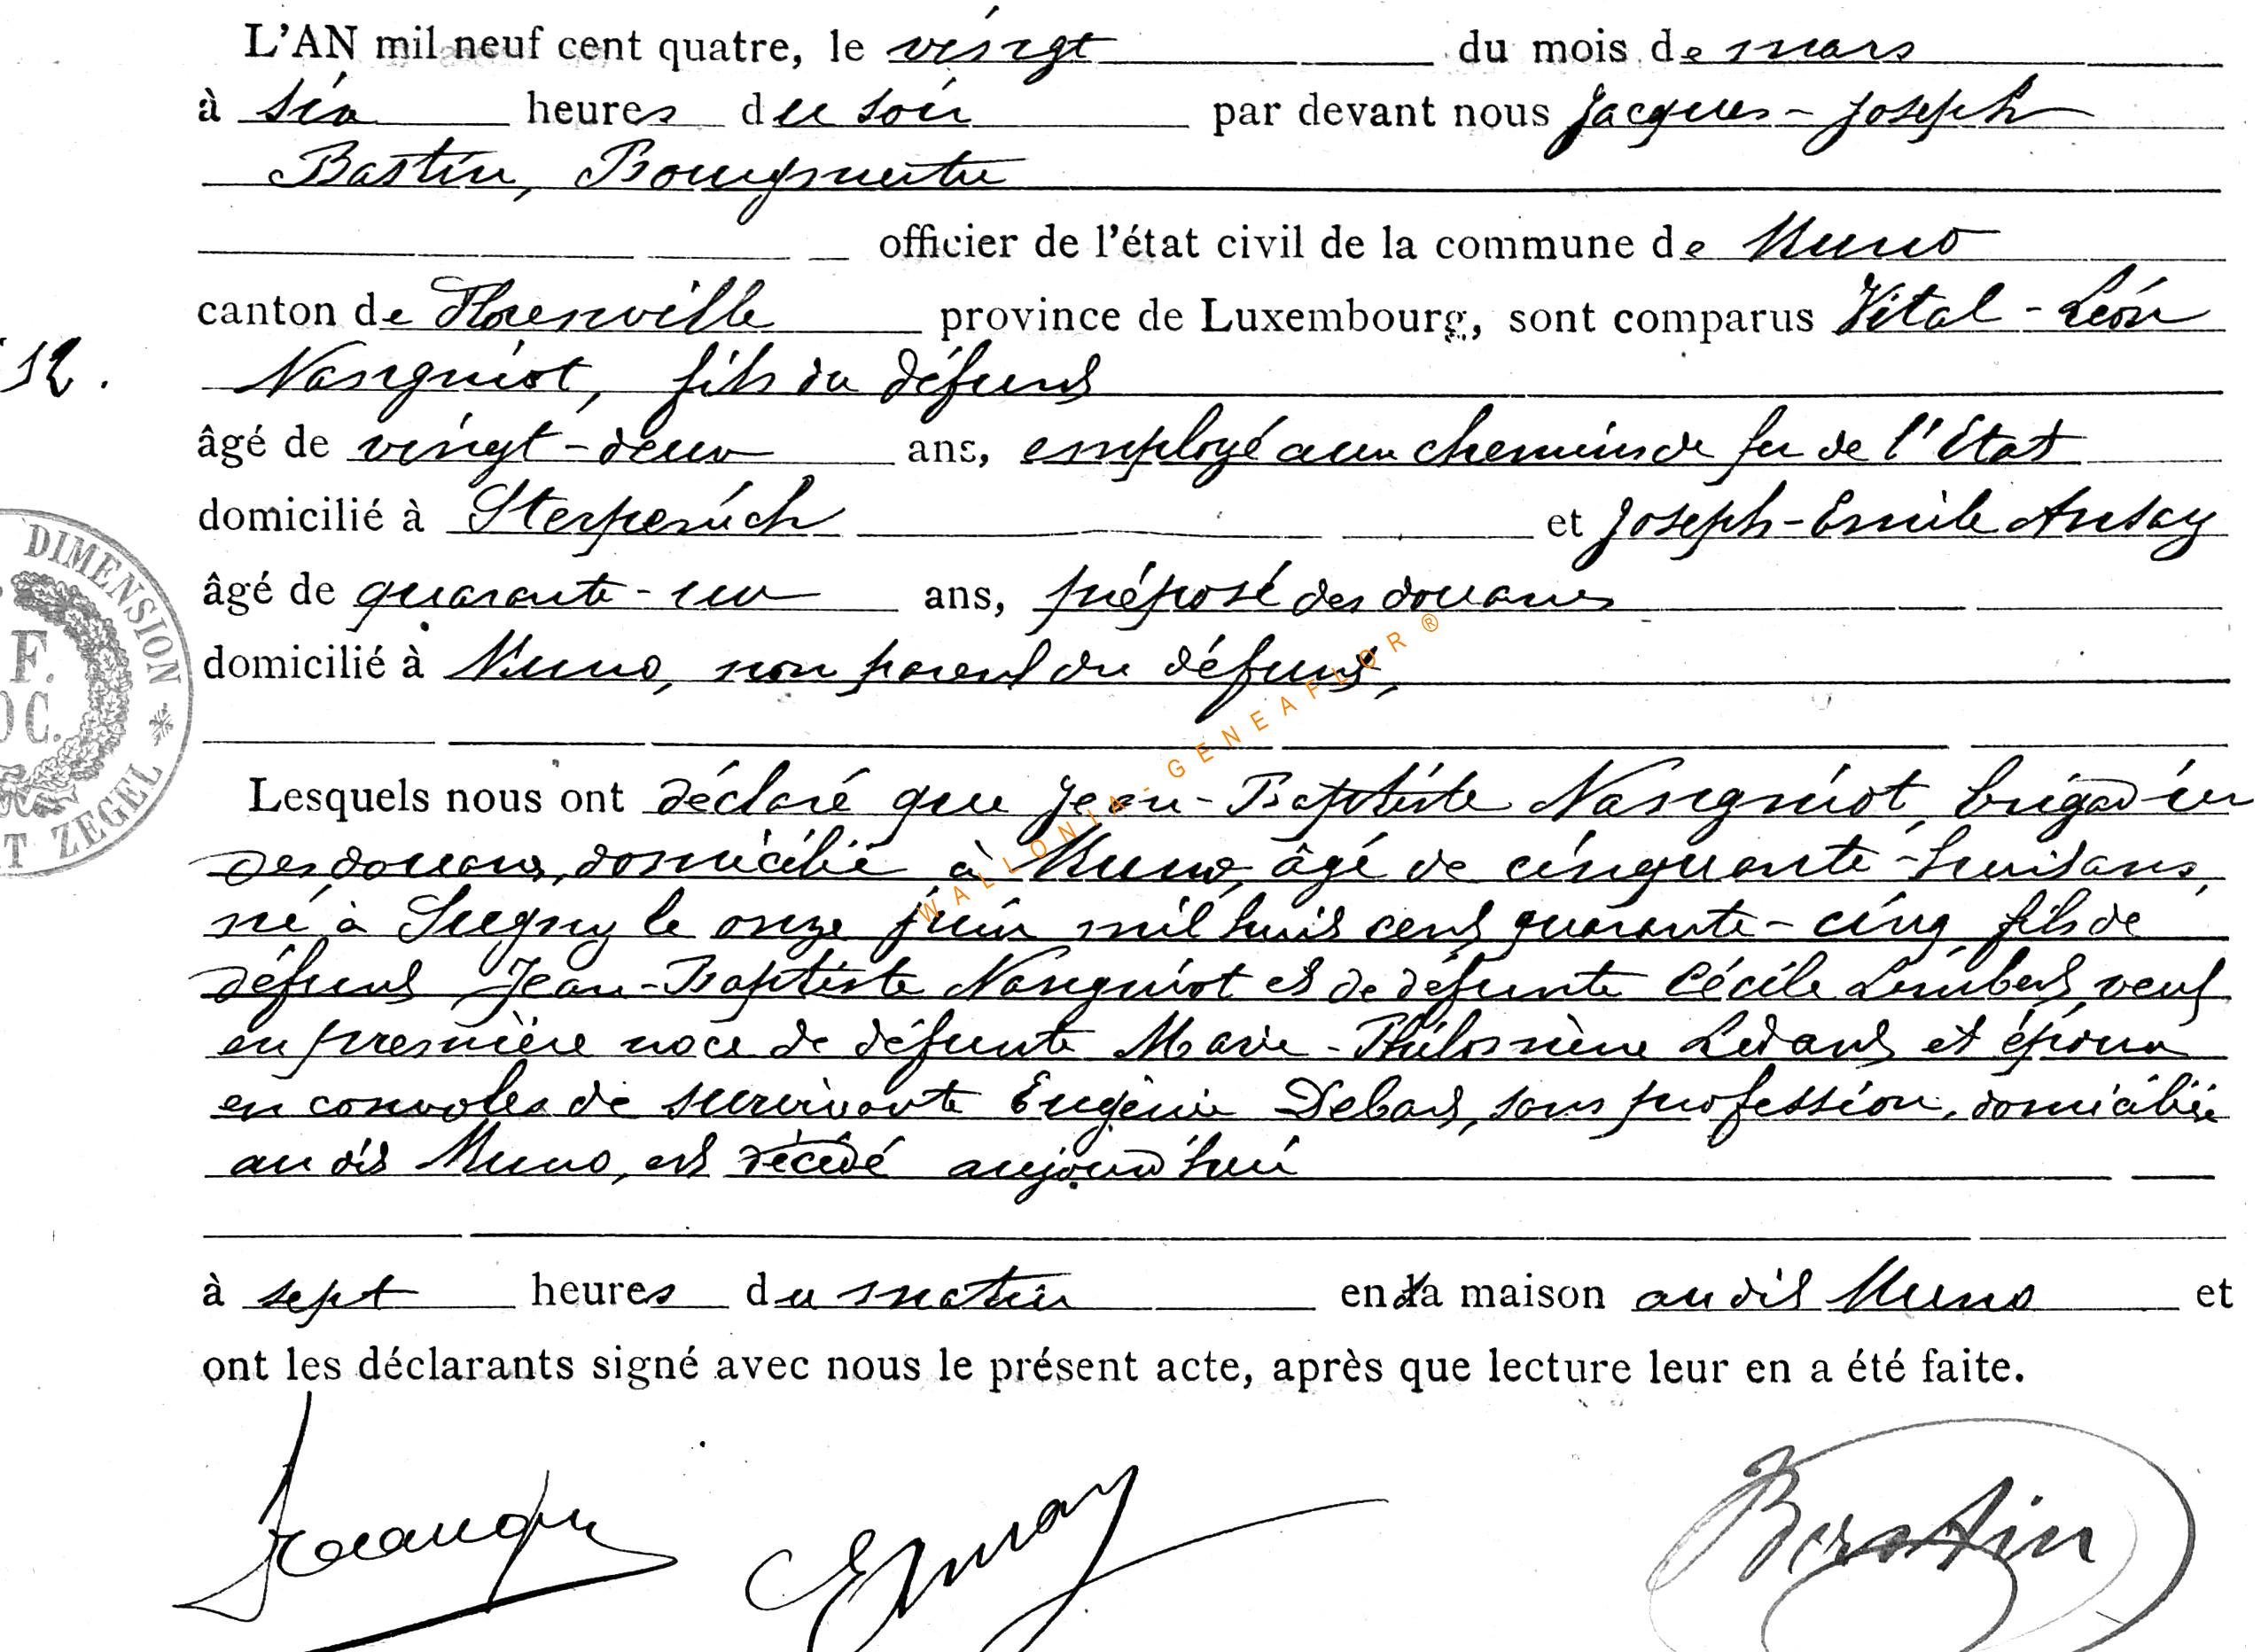 L'AN mil neuf cent quatre, le vingt du mois de mars
à six heures du soir par devant nous Jacques-Joseph
Bastin, Bourgmestre
officier de l'état civil de la commune de Muno
canton de Florenville province de Luxembourg, sont comparus Vital-Léon
12. Nanquiot, fils du défunt
âgé de vingt-deux ans, employé aux chemins de fer de l'Etat
domicilié à Sterpenich et Joseph-Emile Ansay
âgé de quarante-un ans, préposé des douanes
domicilié à Muno, non parent du défunt,
Lesquels nous ont déclaré que Jean-Baptiste Nanquiot, brigadier
des douanes, domicilié à Muno, âgé de cinquante-huit ans,
né à Sugny le onze juin mil huit cent quarante-cinq, fils de
défunt Jean-Baptiste Nanquiot et de défunte Cécile Limbert, veuf
en première noce de défunte Marie-Philomène Ledant et époux
en convoles de survivante Eugénie Debart, sans profession, domiciliée
au dit Muno, est décédé aujourd'hui
à sept heures du matin en sa maison au dit Muno et
ont les déclarants signé avec nous le présent acte, après que lecture leur en a été faite.
Bastin
DIMENSION
F.
OC.
T ZEGEL
WALLONIA-GENEAFLOR ®